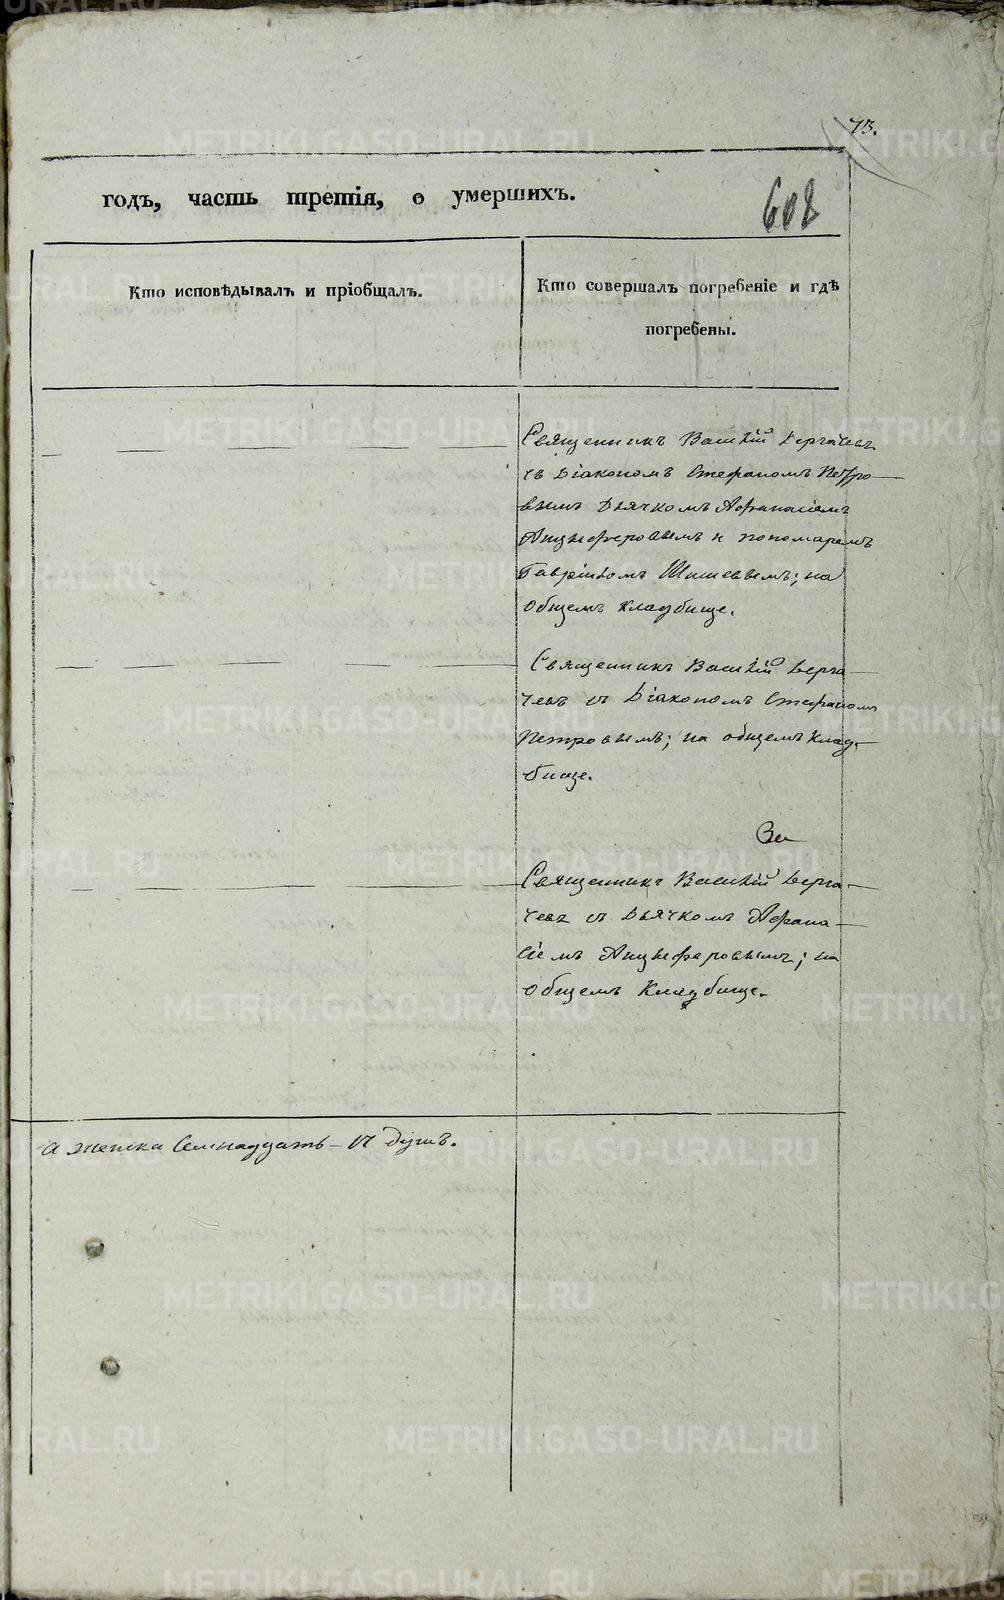 73.
годъ, часть третія, о умершихъ.
608
Кто исповѣдывалъ и пріобщалъ.
Кто совершалъ погребеніе и гдѣ
погребены.
Священникъ Василій Дергачевъ
съ Діакономъ Стефаномъ Петро
вымъ Дьячкомъ Афанасіемъ
Анцыферовымъ и пономаремъ
Гавріиломъ; на
общемъ кладбище.
Священникъ Василій Дерга
чевъ съ Діакономъ Стефаномъ
Петровымъ; на общемъ Клад
бище.
Священникъ Василій Дерга
чевъ съ Дьячкомъ Афана
сіемъ Анцыферовымъ; на
общемъ Кладбище.
а женска Семнадцать – 17 душъ.
METRIKI.GASO-URAL.RU